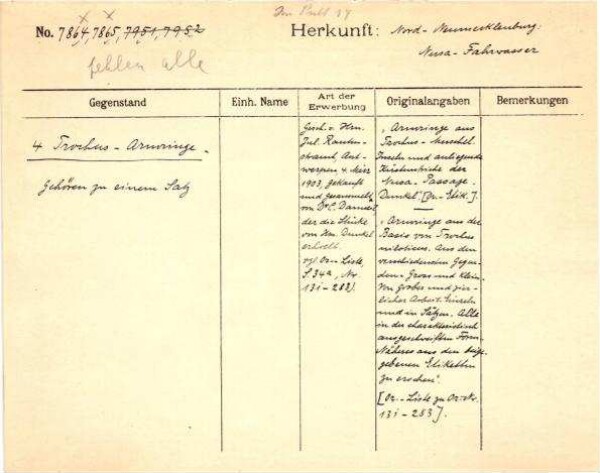 Im Pult 14
No. 7864, 7865, 7951, 7952
fehlen alle
Herkunft: Nord-Neumecklenburg.
Nusa-Fahrwasser
Gegenstand
Einh. Name
Art der Erwerbung
Originalangaben
Bemerkungen
4 Trochus-Armringe.
gehören zu einem Satz
Gesch. v. Hrn.
Jul. Rauten-
strauch, Ant-
werpen 4. März
1903, gekauft
und gesammelt
von Dr. C. Danneil
der die Stücke
von Hrn. Dunkel
erhielt.
vgl. Orn. Liste
S 34a, Nr.
131-283.
"Armringe aus
Trochus-Muschel.
Inseln und anliegende
Küstenstriche der
Nusa-Passage.
Dunkel" [Or.-Etik.].
"Armringe aus der
Basis von Trochus
niloticus. Aus den
verschiedensten Gegen-
den - Gross und Klein.
Von grober und zier-
licher Arbeit. Einzeln
und in Sätzen. Alle
in der charakteristisch
ausgeschweiften Form.
Näheres aus den beige-
gebenen Etiketten
zu ersehen".
[Or.-Liste zu Or.-No.
131-283].